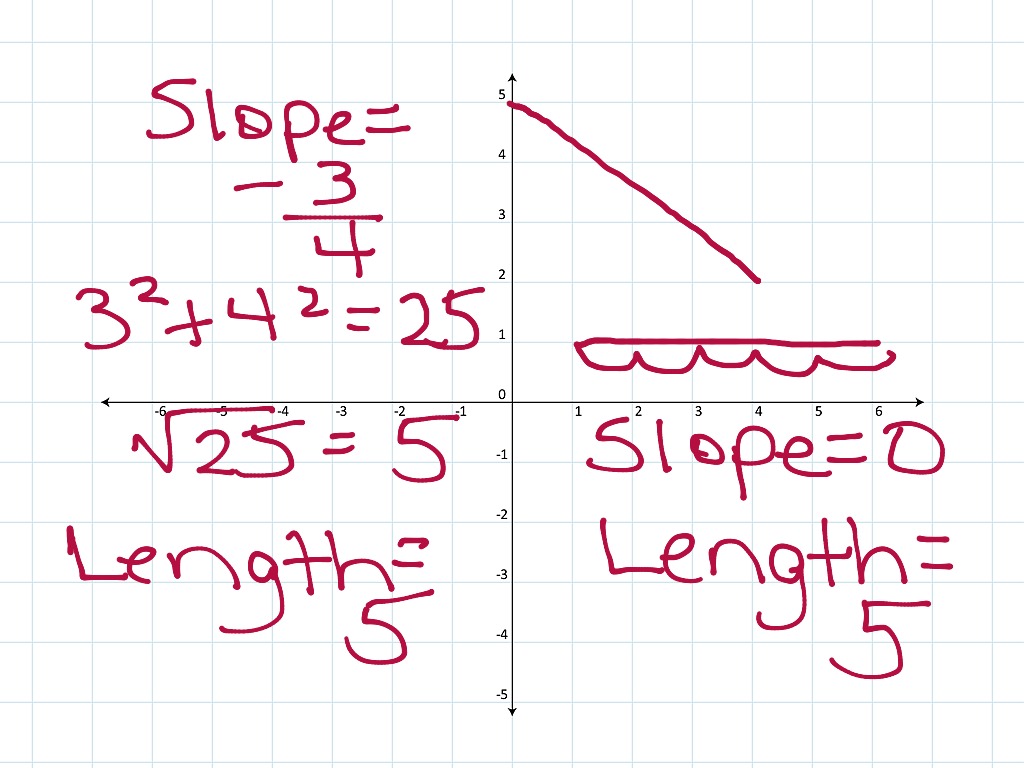 Slope=
- 3
4
3²+4²=25
√25=5
Length=
5
5
4
3
2
1
0
-6 -5 -4 -3 -2 -1 1 2 3 4 5 6
-1
-2
-3
-4
-5
Slope=0
Length=
5